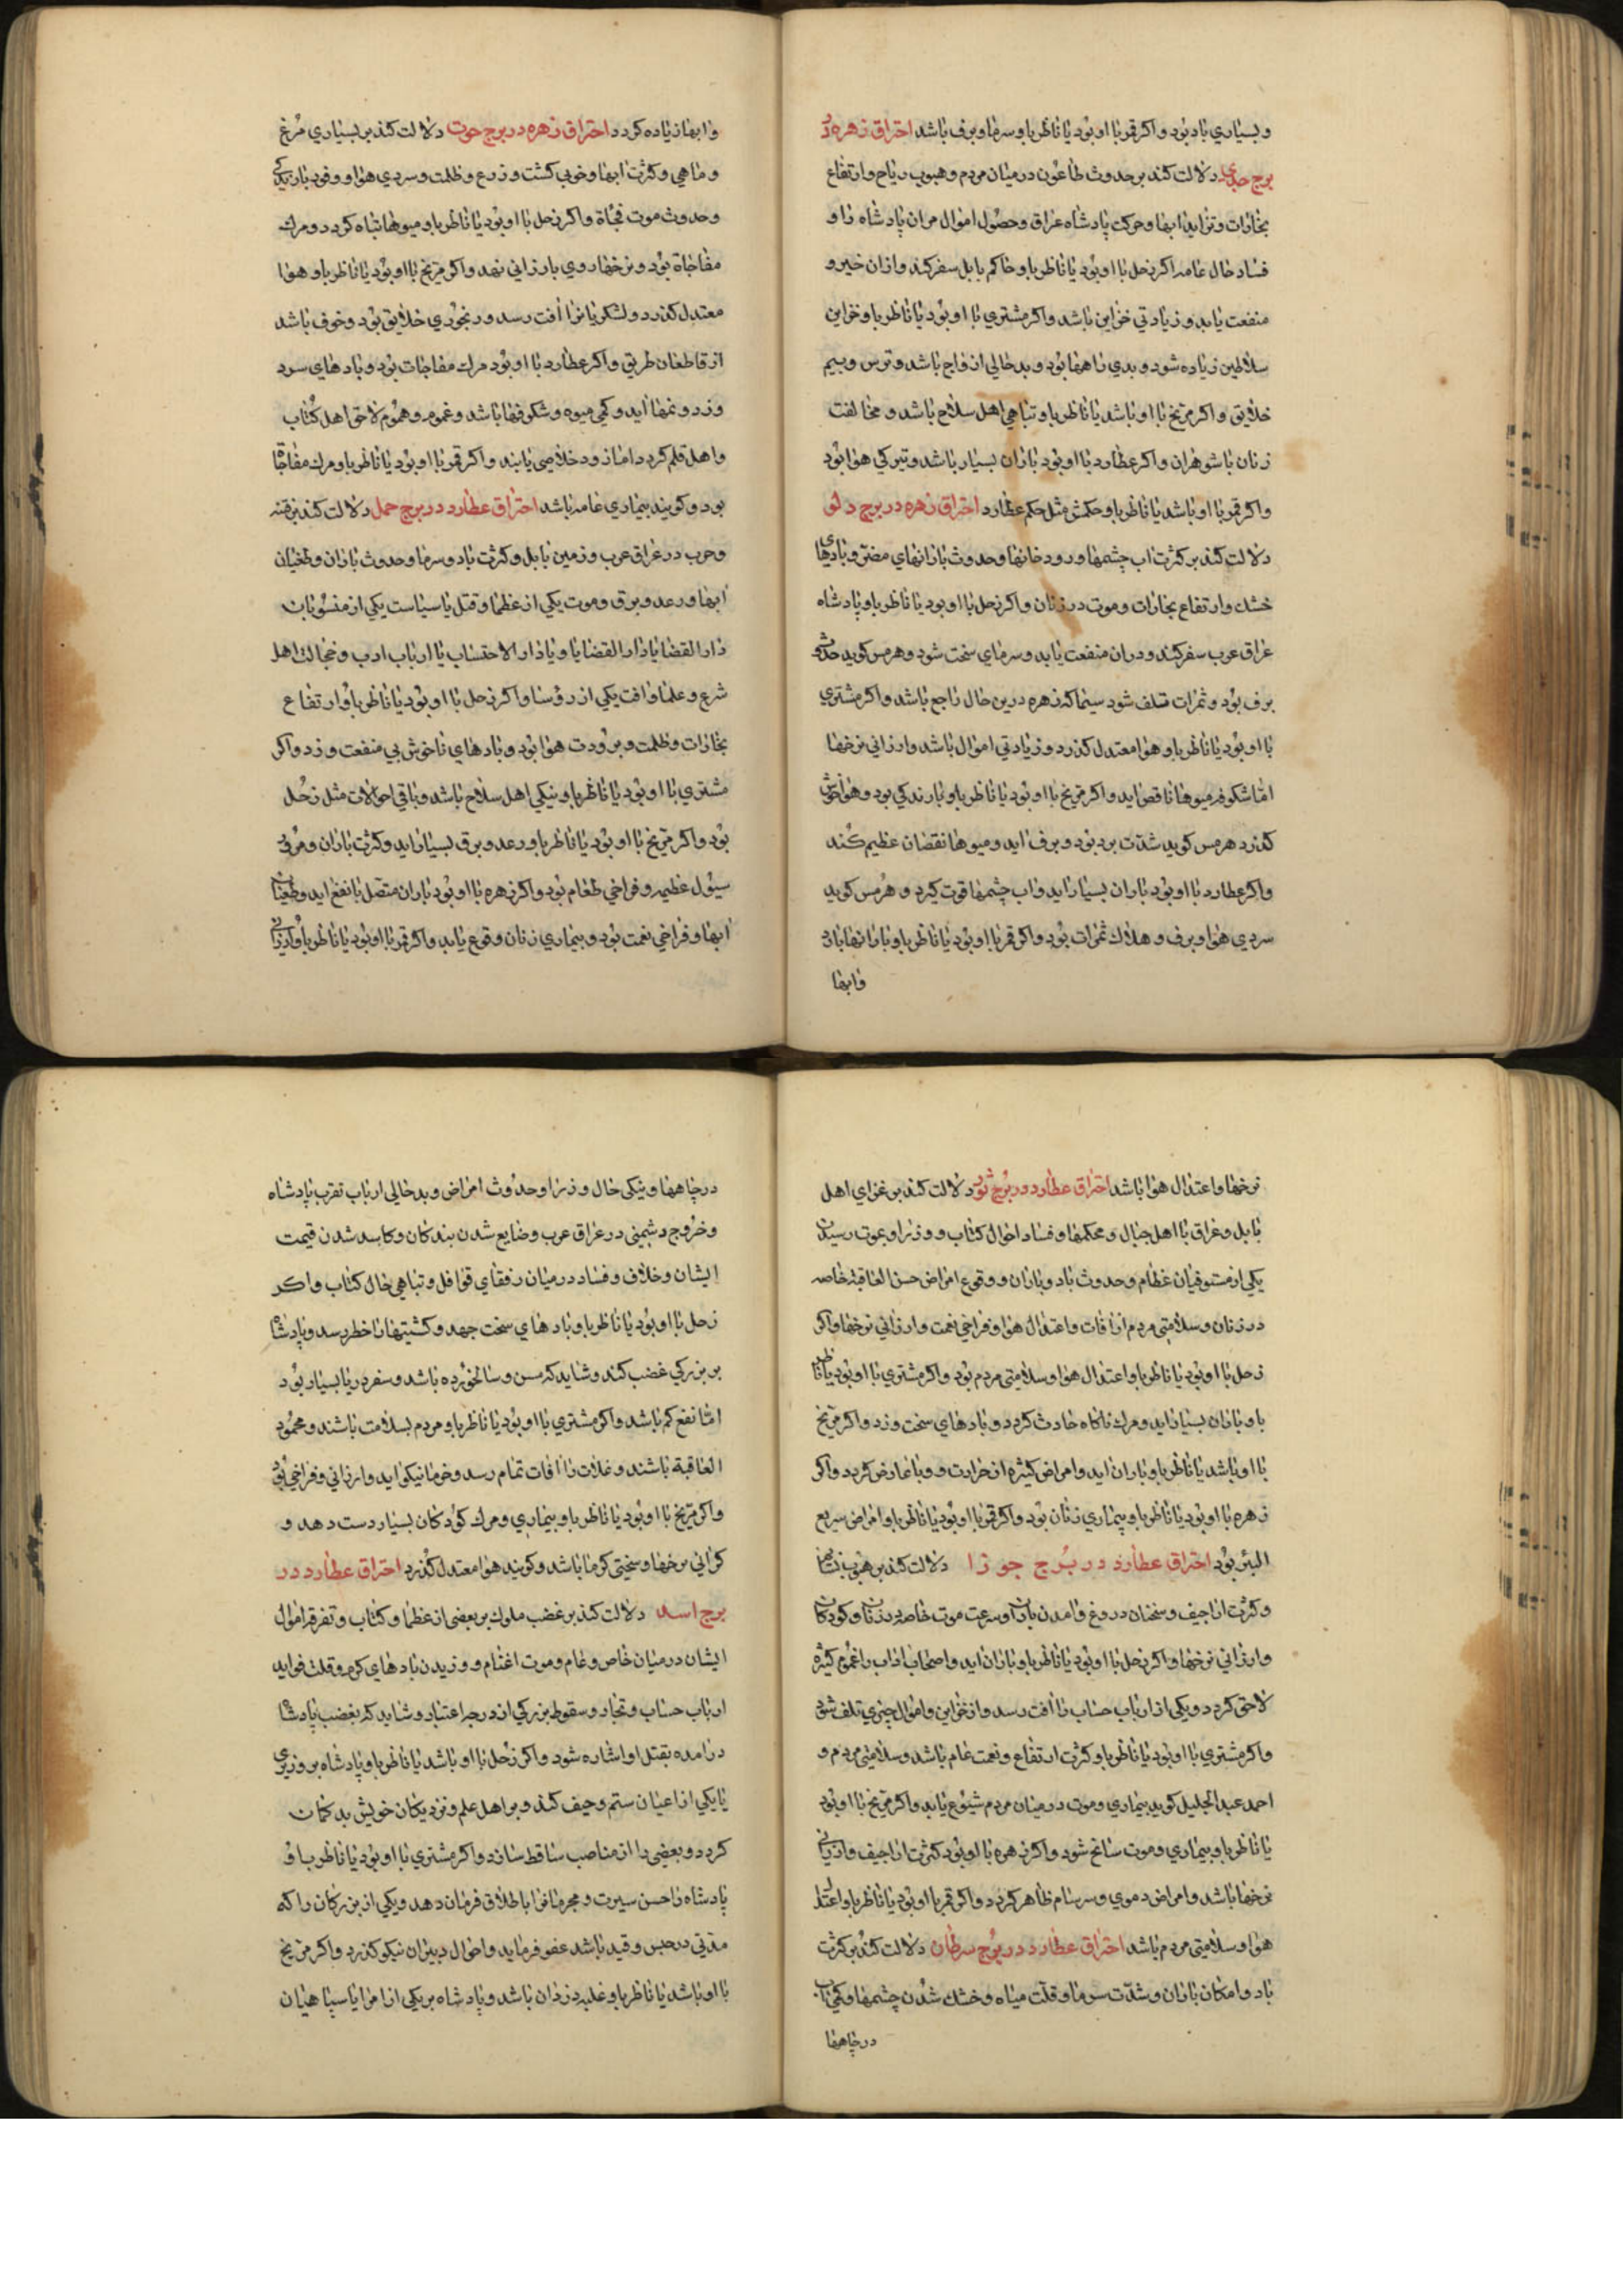 و بسیاری باد بود و اکر قمر با او بود یا ناظر باو سرما و برف باشد احتراق زهره در
برج جدی دلالت کند بر حدوث طاعون در میان مردم و هبوب ریاح و ارتفاع
بخارات و تزاید ابها و حرکت پادشاه عراق و حصول اموال مران پادشاه را و
فساد حال عامه اکر زحل با او بود یا ناظر باو حاکم بابل سفر کند و ازان خیر و
منفعت یابد و زیادتی خزاین باشد و اکر مشتری با او بود یا ناظر باو خزاین
سلاطین زیاده شود و بدی راهها بود و بد حالی ازواج باشد و ترس و بیم
خلایق و اکر مریخ با او باشد یا ناظر باو تباهی اهل سلاح باشد و مخالفت
زنان با شوهران و اکر عطارد با او بود باران بسیار باشد و تیرکی هوا بود
و اکر قمر با او باشد یا ناظر باو حکمش مثل حکم عطارد احتراق زهره در برج دلو
دلالت کند بر کثرت اب چشمها و رودخانها و حدوث بارانهای مضر و بادهای
خشك و ارتفاع بخارات و موت در زنان و اکر زحل با او بود یا ناظر باو پادشاه
عراق عرب سفر کند و دران منفعت یابد و سرمای سخت شود و هرمس کوید
برف بود و ثمرات تلف شود سیما که زهره درین حال راجع باشد و اکر مشتری
با او بود یا ناظر باو هوا معتدل کذرد و زیادتی اموال باشد و ارزانی نرخها
اما شکوفه میوها ناقص اید و اکر مریخ با او بود یا ناظر باو بارندکی بود و هوا خوش
کذرد هرمس کوید شدت برد بود و برف اید و میوها نقصان عظیم کند
و اکر عطارد با او بود باران بسیار اید و اب چشمها قوت کیرد و هرمس کوید
سردی هوا و برف و هلاك ثمرات بود و اکر قمر با او بود یا ناظر باو بارانها بارد
وابها
وابها زیاده کردد احتراق زهره در برج حوت دلالت کند بر بسیاری مرغ
و ماهی و کثرت ابها و خوبی کشت و زرع و ظلمت و سردی هوا و وفور بارندکی
و حدوث موت فجأة و اکر زحل با او بود یا ناظر باو میوها تباه کردد و مرك
مفاجاة بود و نرخها روی بارزانی نهد و اکر مریخ با او بود یا ناظر باو هوا
معتدل کذرد و لشکریانرا افت رسد و رنجوری خلایق بود و خوف باشد
از قاطعان طریق و اکر عطارد با او بود مرك مفاجات بود و بادهای سرد
وزد و نمها اید و کمی میوه و شکوفها باشد و غموم و هموم لاحق اهل کتاب
و اهل قلم کردد اما زود خلاصی یابند و اکر قمر با او بود یا ناظر باو مرك مفاجاة
بود و کویند بیماری عامه باشد احتراق عطارد در برج حمل دلالت کند بر فتنه
و حرب در عراق عرب و زمین بابل و کثرت باد و سرما و حدوث باران و طغیان
ابها و رعد و برق و موت یکی از عظما و قتل یا سیاست یکی از منسوبان
دار القضایا دار القضایا و یا دار الاحتساب یا ارباب ادب و خجالت اهل
شرع و علما و افت یکی از رؤسا و اکر زحل با او بود یا ناظر باو ارتفاع
بخارات و ظلمت و برودت هوا بود و بادهای ناخوش بی منفعت وزد و اکر
مشتری با او بود یا ناظر باو نیکی اهل سلاح باشد و باقی احوالات مثل زحل
بود و اکر مریخ با او بود یا ناظر باو رعد و برق بسیار اید و کثرت باران و
سیول عظیمه و فراخی طعام بود و اکر زهره با او بود باران متصل با نفع اید و طغیان
ابها و فراخی نعمت بود و بیماری زنان وقوع یابد و اکر قمر با او بود یا ناظر باو ارزانی
نرخها و اعتدال هوا باشد احتراق عطارد در برج ثور دلالت کند بر غزای اهل
بابل و عراق با اهل جبال و محکمها و فساد احوال کتاب و وزرا و بموت رسیدن
یکی از مستوفیان عظام و حدوث باد و باران و وقوع امراض حسن العاقبه خاصه
در زنان و سلامتی مردم از افات و اعتدال هوا و فراخی نعمت و ارزانی نرخها و اکر
زحل با او بود یا ناظر باو اعتدال هوا و سلامتی مردم بود و اکر مشتری با او بود یا ناظر
باو باران بسیار اید و مرك ناکاه حادث کردد و بادهای سخت وزد و اکر مریخ
با او باشد یا ناظر باو باران اید و امراض کثیره از حرارت و وبا عارض کردد و اکر
زهره با او بود یا ناظر باو بیماری زنان بود و اکر قمر با او بود یا ناظر باو امراض سریع
البئر بود احتراق عطارد در برج جوزا دلالت کند بر هبوب
و کثرت اراجیف و سخنان دروغ و امدن باران و سرعت موت خاصه در زنان و کودکان
و ارزانی نرخها و اکر زحل با او بود یا ناظر باو باران اید و اصحاب اداب را غموم کثیره
لاحق کردد و یکی از ارباب حساب را افت رسد و از خزاین و اموال چیزی تلف شود
و اکر مشتری با او بود یا ناظر باو کثرت ارتفاع و نعمت عام باشد و سلامتی مردم و
احمد عبد الجلیل کوید بیماری و موت در میان مردم شیوع یابد و اکر مریخ با او بود
یا ناظر باو بیماری و موت سانح شود و اکر زهره با او بود کثرت اراجیف و ارزانی
نرخها باشد و امراض دموی و سرسام ظاهر کردد و اکر قمر با او بود یا ناظر باو اعتدال
هوا و سلامتی مردم باشد احتراق عطارد در برج سرطان دلالت کند بر کثرت
باد و امکان باران و شدت سرما و قلت میاه و خشك شدن چشمها و کمی اب
در چاهها
در چاهها و نیکی حال وزرا و حدوث امراض و بد حالی ارباب تقرب پادشاه
و خروج دشمنی در عراق عرب و ضایع شدن بندکان و کاسد شدن قیمت
ایشان و خلاف و فساد در میان رفقای قوافل و تباهی حال کتاب و اکر
زحل با او بود یا ناظر باو بادهای سخت جهد و کشتیها را خطر رسد و پادشاه
بر بزرکی غضب کند و شاید که مسن و سالخورده باشد و سفر دریا بسیار بود
اما نفع کم باشد و اکر مشتری با او بود یا ناظر باو مردم بسلامت باشند و محمود
العاقبة باشند و غلات را افات تمام رسد و خرما نیکو اید و ارزانی و فراخی بود
و اکر مریخ با او بود یا ناظر باو بیماری و مرك کودکان بسیار دست دهد و
کرانی نرخها و سختی کرما باشد و کویند هوا معتدل کذرد احتراق عطارد در
برج اسد دلالت کند بر غضب ملوك بر بعضی از عظما و کتاب و تفرقه اموال
ایشان در میان خاص و عام و موت اغنام و وزیدن بادهای کرم و قلت فواید
ارباب حساب و تجار و سقوط بزرکی از درجه اعتبار و شاید که بغضب پادشاه
درامده بقتل او اشاره شود و اکر زحل با او باشد یا ناظر باو پادشاه بر وزیری
یا یکی از اعیان ستم و حیف کند و بر اهل علم و نزدیکان خویش بد کمان
کردد و بعضی را از مناصب ساقط سازد و اکر مشتری با او بود یا ناظر باو
پادشاه را حسن سیرت و مجرمانرا باطلاق فرمان دهد و یکی از بزرکان را که
مدتی در حبس و قید باشد عفو فرماید و احوال دبیران نیکو کذرد و اکر مریخ
با او باشد یا ناظر باو غلبه دزدان باشد و پادشاه بر یکی از امرا یا سپاهیان